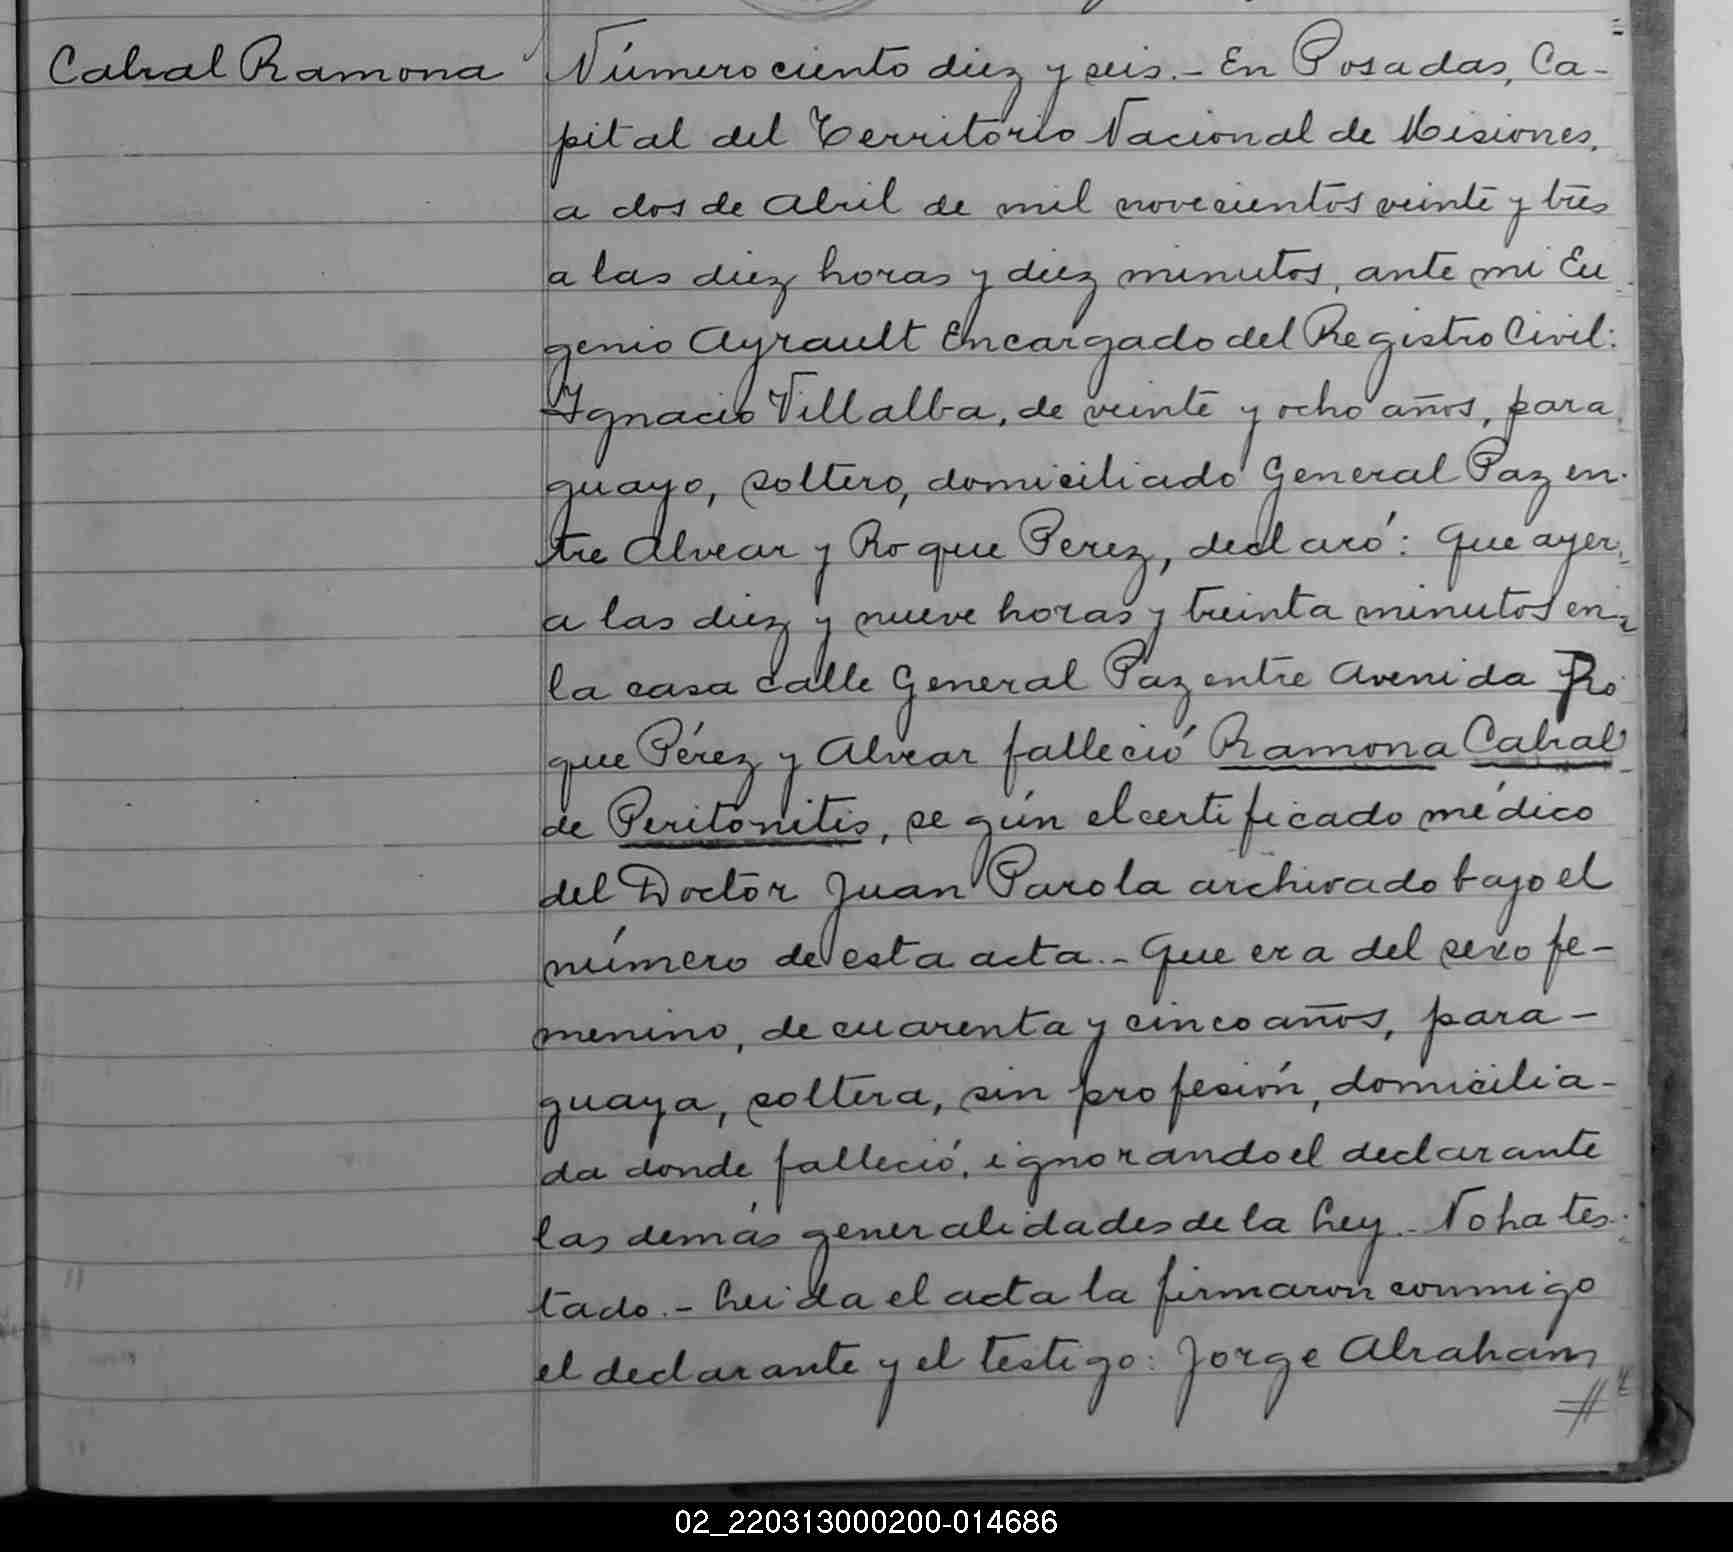 Cabral Ramona
Número ciento diez y seis.- En Posadas, Ca-
pital del Territorio Nacional de Misiones,
a dos de Abril de mil novecientos veinte y tres
a las diez horas y diez minutos, ante mi Eu
genio Ayrault Encargado del Registro Civil:
Ignacio Villalba, de veinte y ocho años, para
guayo, soltero, domiciliado General Paz en-
tre Alvear y Roque Perez, declaró: Que ayer
a las diez y nueve horas y treinta minutos en
la casa calle General Paz entre Avenida Ro
que Pérez y Alvear falleció Ramona Cabral
de Peritonitis, según el certificado médico
del Doctor Juan Parola archivado bajo el
número de esta acta.- Que era del sexo fe-
menino, de cuarenta y cinco años, para-
guaya, soltera, sin profesión, domicilia-
da donde falleció, ignorando el declarante
las demás generalidades de la Ley.- No ha tes-
tado.- Leida el acta la firmaron conmigo
el declarante y el testigo: Jorge Abraham
02_220313000200-014686